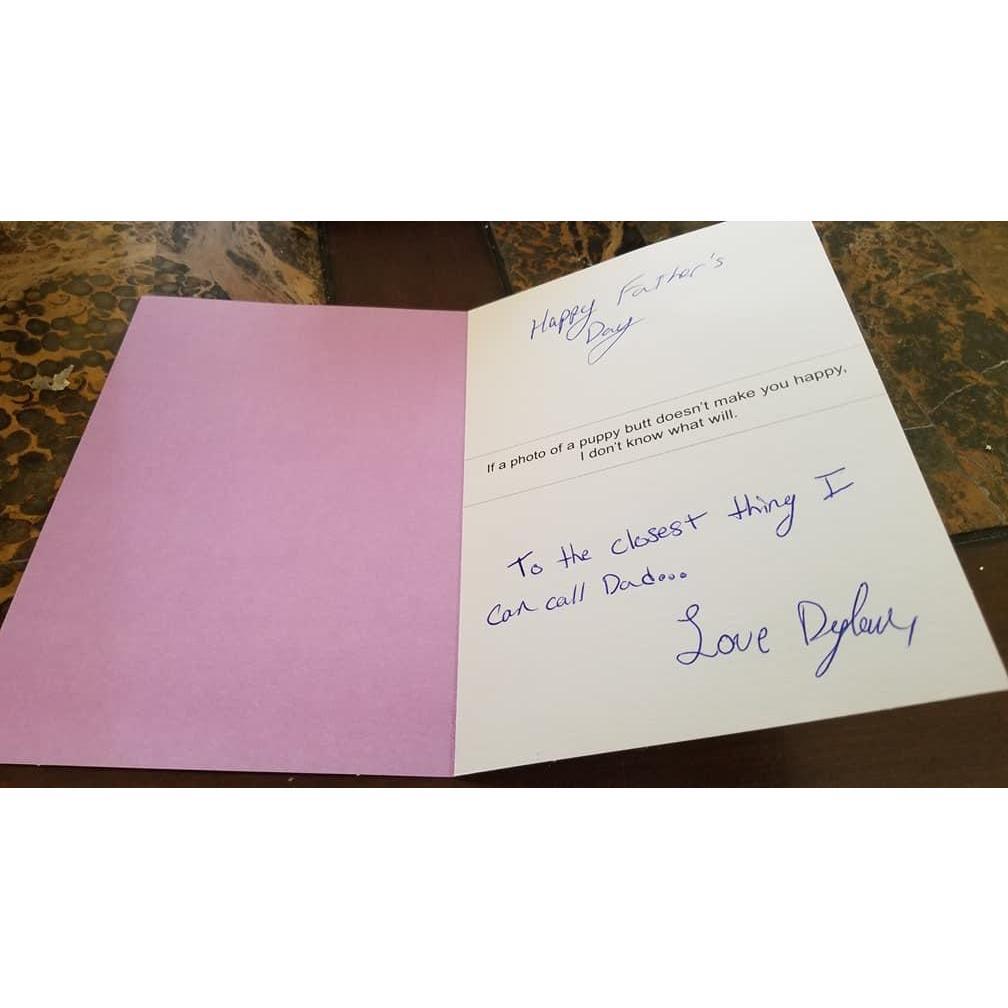 Happy Father's
Day
If a photo of a puppy butt doesn't make you happy,
I don't know what will.
To the closest thing I
can call Dad...
Love Dylan,